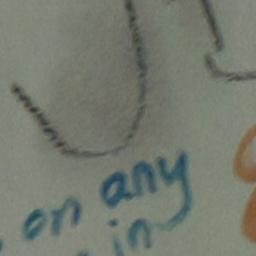 on any
in